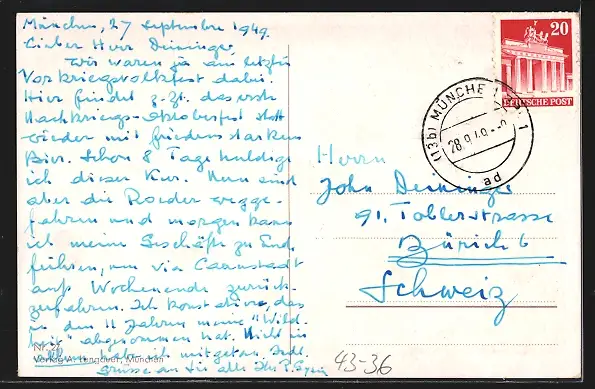 München, 27 Septembre 1949.
Lieber Herr Deininger,
wir waren ja am letzten
Vorkriegsvolkfest dabei.
Hier findet z.Zt. das erste
Nachkriegs-Oktoberfest statt
wieder mit friedensstarkem
Bier. Schon 8 Tage huldige
ich dieser Kur. Nun sind
aber die Roeder wegge-
fahren und morgen kann
ich meine Geschäfte zu End
führen, um via Cannstadt
aufs Wochenende zurück-
zufahren. Ich konstatiere, das
in den 11 Jahren meine "Wild-
heit" abgenommen hat. Nicht in
allem hab ich mitgetan.
Grüsse an Sie alle Ihr
Nr. 21
Verlag A. Lengauer, München
20
DEUTSCHE POST
(13b) MÜNCHEN 1
28.9.49.
ad
Herrn
John Deininger
91. Toblerstrasse
Zürich 6
Schweiz
43-36